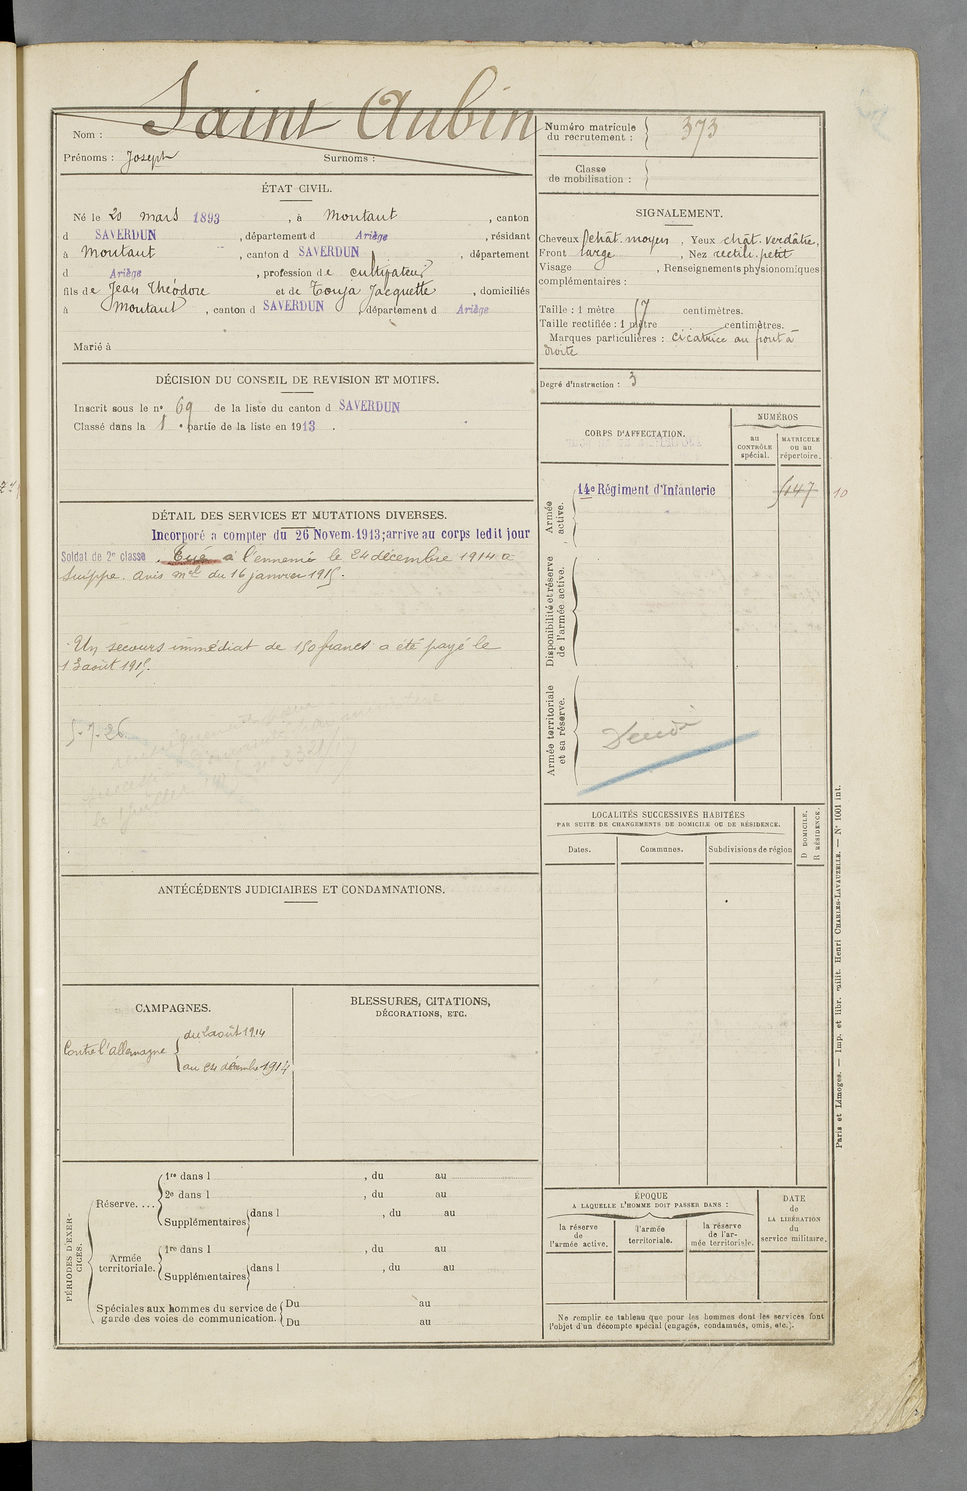 Saint Aubin
Nom :
Prénoms : Joseph Surnoms :
Numéro matricule
du recrutement : 373
Classe
de mobilisation :
ÉTAT CIVIL.
Né le 20 mars 1893, à Montaut, canton
d SAVERDUN, département d Ariège, résidant
à Montaut, canton d SAVERDUN, département
d Ariège, profession de cultivateur
fils de Jean Théodore et de Touja Jacquette, domiciliés
à Montaut, canton d SAVERDUN, département d Ariège
Marié à
DÉCISION DU CONSEIL DE REVISION ET MOTIFS.
Inscrit sous le nº 69 de la liste du canton d SAVERDUN
Classé dans la 1e partie de la liste en 1913.
DÉTAIL DES SERVICES ET MUTATIONS DIVERSES.
Incorporé a compter du 26 Novem. 1913; arrive au corps ledit jour
Soldat de 2e classe. Tué à l'ennemi le 24 décembre 1914 à
Suippe. Avis mel du 16 janvier 1915.
Un secours immédiat de 150 francs a été payé le
13 août 1915.
5-7-26
ANTÉCÉDENTS JUDICIAIRES ET CONDAMNATIONS.
CAMPAGNES.
Contre l'allemagne
du 2 août 1914
au 24 décembre 1914
BLESSURES, CITATIONS,
DÉCORATIONS, ETC.
PÉRIODES D'EXERCICES.
Réserve....
1re dans l , du au
2e dans l , du au
Supplémentaires dans l , du au
Armée
territoriale.
1re dans l , du au
Supplémentaires dans l , du au
Spéciales aux hommes du service de
garde des voies de communication.
Du au
Du au
SIGNALEMENT.
Cheveux chât. moyen, Yeux chât. verdâtre,
Front large, Nez rectili. petit
Visage , Renseignements physionomiques
complémentaires :
Taille : 1 mètre 57 centimètres.
Taille rectifiée : 1 mètre centimètres.
Marques particulières : cicatrice au front à
droite
Degré d'instruction : 3
CORPS D'AFFECTATION.
NUMÉROS
au
CONTRÔLE
spécial.
MATRICULE
ou au
répertoire.
Armée
active.
14e Régiment d'Infanterie
5147
10
Disponibilité et réserve
de l'armée active.
Armée territoriale
et sa réserve.
LOCALITÉS SUCCESSIVES HABITÉES
PAR SUITE DE CHANGEMENTS DE DOMICILE OU DE RÉSIDENCE.
Dates.
Communes.
Subdivisions de région
D DOMICILE.
R RÉSIDENCE.
ÉPOQUE
A LAQUELLE L'HOMME DOIT PASSER DANS :
la réserve
de
l'armée active.
l'armée
territoriale.
la réserve
de l'ar-
mée territoriale.
DATE
de
LA LIBÉRATION
du
service militaire.
Ne remplir ce tableau que pour les hommes dont les services font
l'objet d'un décompte spécial (engagés, condamnés, omis, etc.).
Paris et Limoges. — Imp. et libr. milit. Henri CHARLES-LAVAUZELLE. — Nº 1001 int.